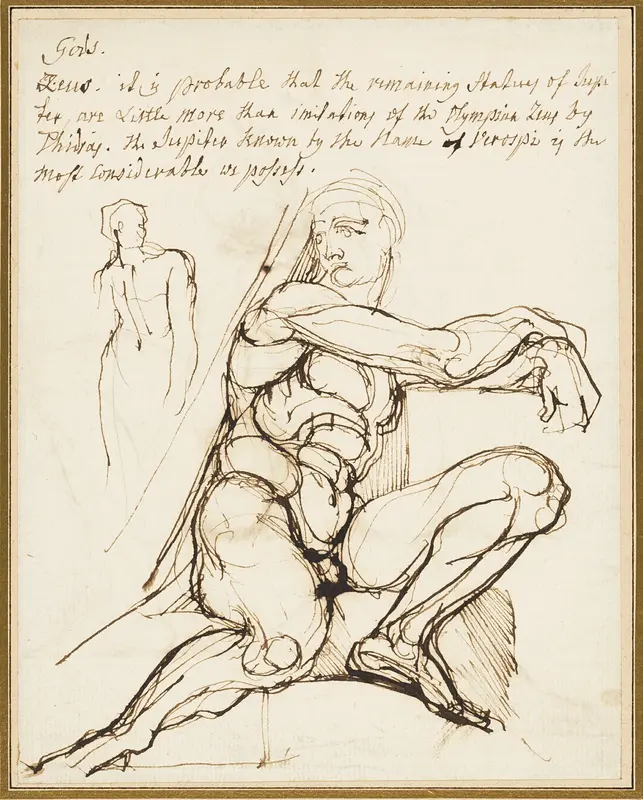 Gods.
Zeus. it is probable that the remaining Statues of Jupi
ter, are Little more than imitations of the Olympian Zeus by
Phidias. the Jupiter known by the Name of Verospi is the
most Considerable we possess.